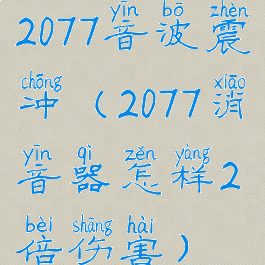 yīn bō zhèn
2077音波震
chōng xiāo
冲（2077消
yīn qì zěn yàng
音器怎样2
bèi shāng hài
倍伤害）